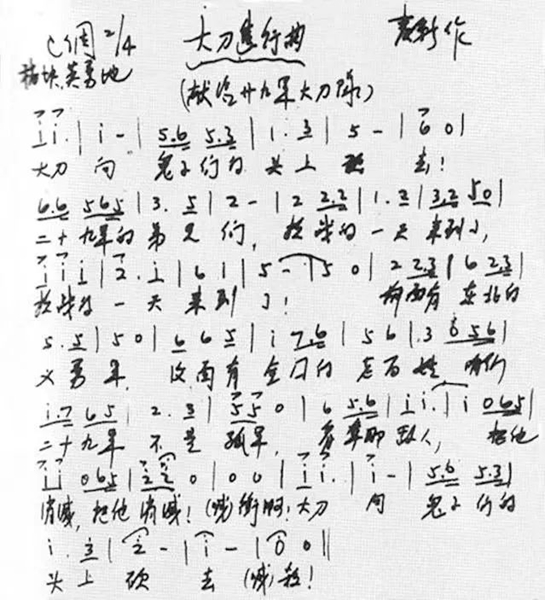 C调 2/4 大刀进行曲 麦新作
稍快.英勇地 (献给廿九军大刀队)
i i. | i - | 5.6 5.3 | 1. 3 | 5 - | 6 0 |
大刀 向 鬼子们的 头上 砍 去!
6.6 565 | 3. 5 | 2 - | 2 2.2 | 1. 3 | 3.2 50 |
二十九军的弟兄们, 抗战的一天来到了,
i i i | 2. i | 6 i | 5 - | 5 0 | 2 2.3 | 6 2.3 |
抗战的一天来到了! 前面有 东北的
5. 5 | 5 0 | 6 6 5 | i 7.6 | 5 6 | .3 0 5 6 |
义勇军, 后面有 全国的 老百姓 咱们
i.7 65 | 2. 3 | 55 0 | 6 5.6 | i i. | i 065 |
二十九军 不是 孤军, 看准那敌人, 把他
i i 065 | 2 2 0 | 0 0 | i i. | i - | 5.6 5.3 |
消滅, 把他 消滅! (喊)衝啊! 大刀 向 鬼子们的
i. 3 | 2 - | i - | 0 0 ||
头上 砍 去 (喊)殺!